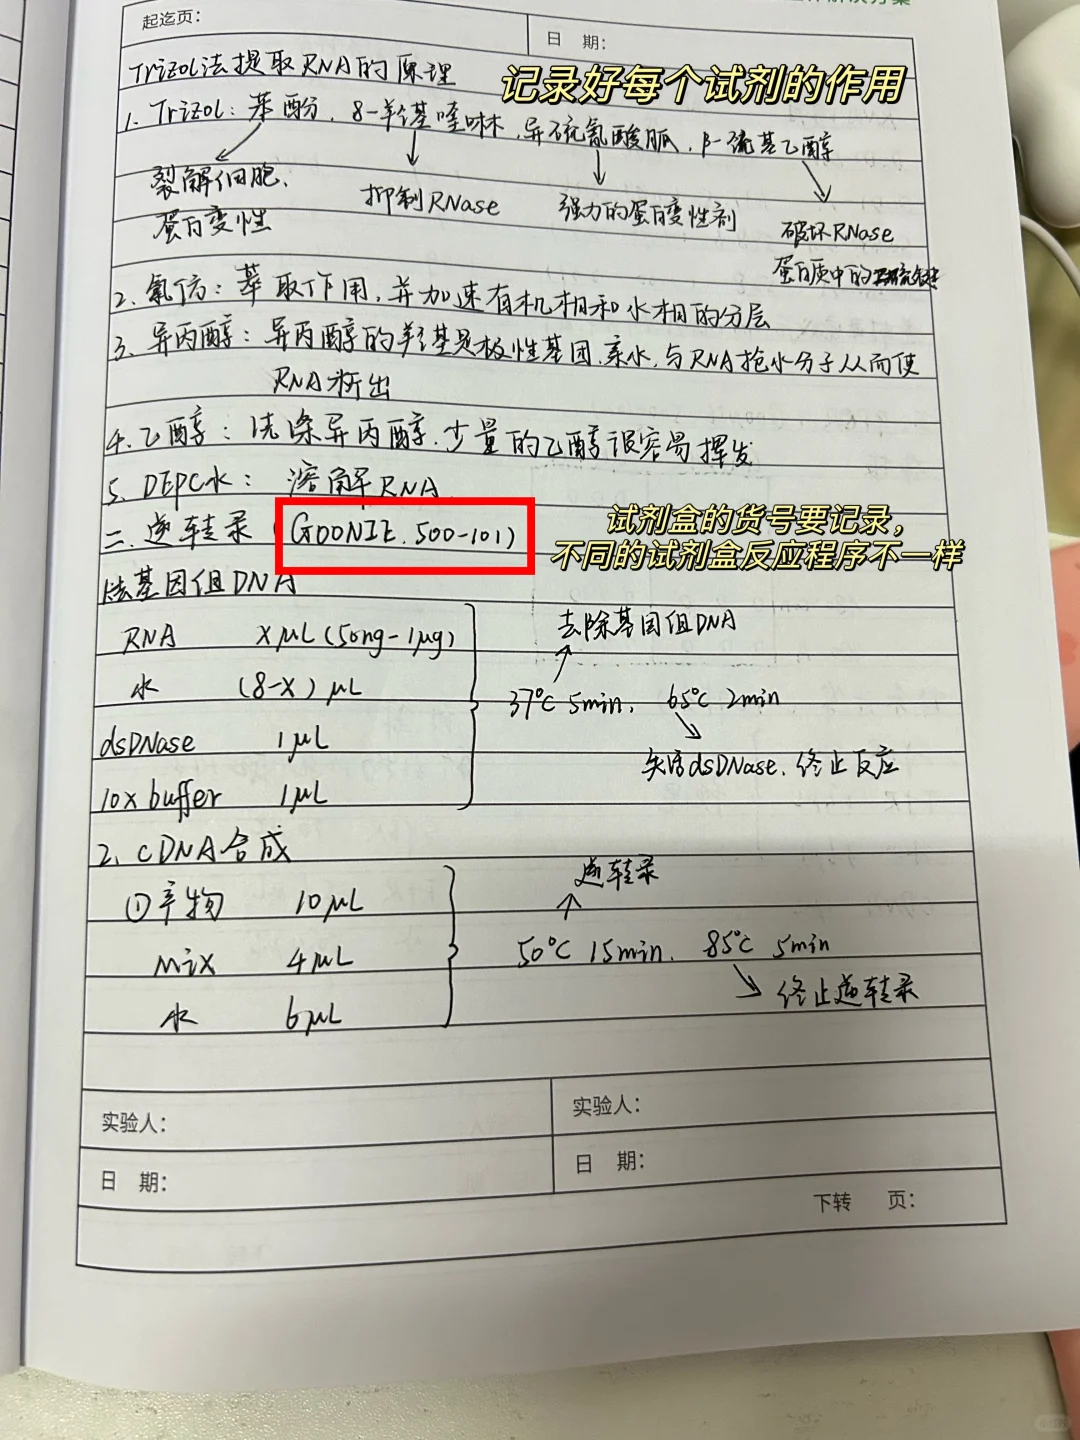 起迄页：
日 期：
Trizol法提取RNA的原理
记录好每个试剂的作用
1. Trizol：苯酚，8-羟基喹啉，异硫氰酸胍，β-巯基乙醇
裂解细胞、蛋白变性
抑制RNase
强力的蛋白变性剂
破坏RNase
蛋白质中的
2. 氯仿：萃取作用，并加速有机相和水相的分层
3. 异丙醇：异丙醇的羟基是极性基团，亲水，与RNA抢水分子从而使
RNA析出
4. 乙醇：洗涤异丙醇，少量的乙醇很容易挥发
5. DEPC水：溶解RNA.
二、逆转录（GOONIE, 500-101）
试剂盒的货号要记录，
不同的试剂盒反应程序不一样
1.去基因组DNA
RNA XμL (50ng-1μg)
去除基因组DNA
水 (8-X) μL
37℃ 5min, 65℃ 2min
dsDNase 1μL
失活dsDNase，终止反应
10x buffer 1μL
2. cDNA合成
逆转录
①产物 10μL
50℃ 15min, 85℃ 5min
Mix 4μL
终止逆转录
水 6μL
实验人：
实验人：
日 期：
日 期：
下转 页：